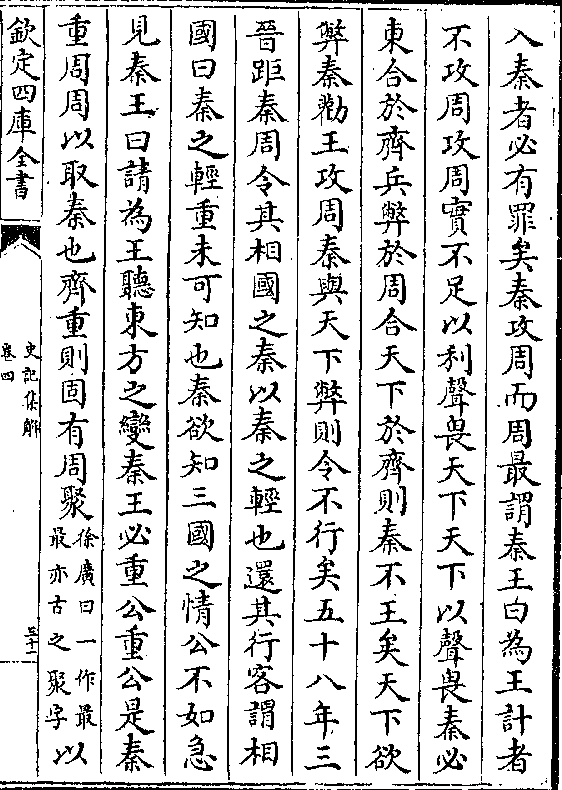 入秦者必有罪矣秦攻周而周最謂秦王曰為王計者
不攻周攻周實不足以利聲畏天下天下以聲畏秦必
東合於齊兵弊於周合天下於齊則秦不王矣天下欲
弊秦勸王攻周秦與天下弊則令不行矣五十八年三
晉距秦周令其相國之秦以秦之輕也還其行客謂相
國曰秦之輕重未可知也秦欲知三國之情公不如急
見秦王曰請為王聽東方之變秦王必重公重公是秦
重周周以取秦也齊重則固有周聚
徐廣曰一作最
最亦古之聚字
以
欽定四庫全書
史記集解
卷四